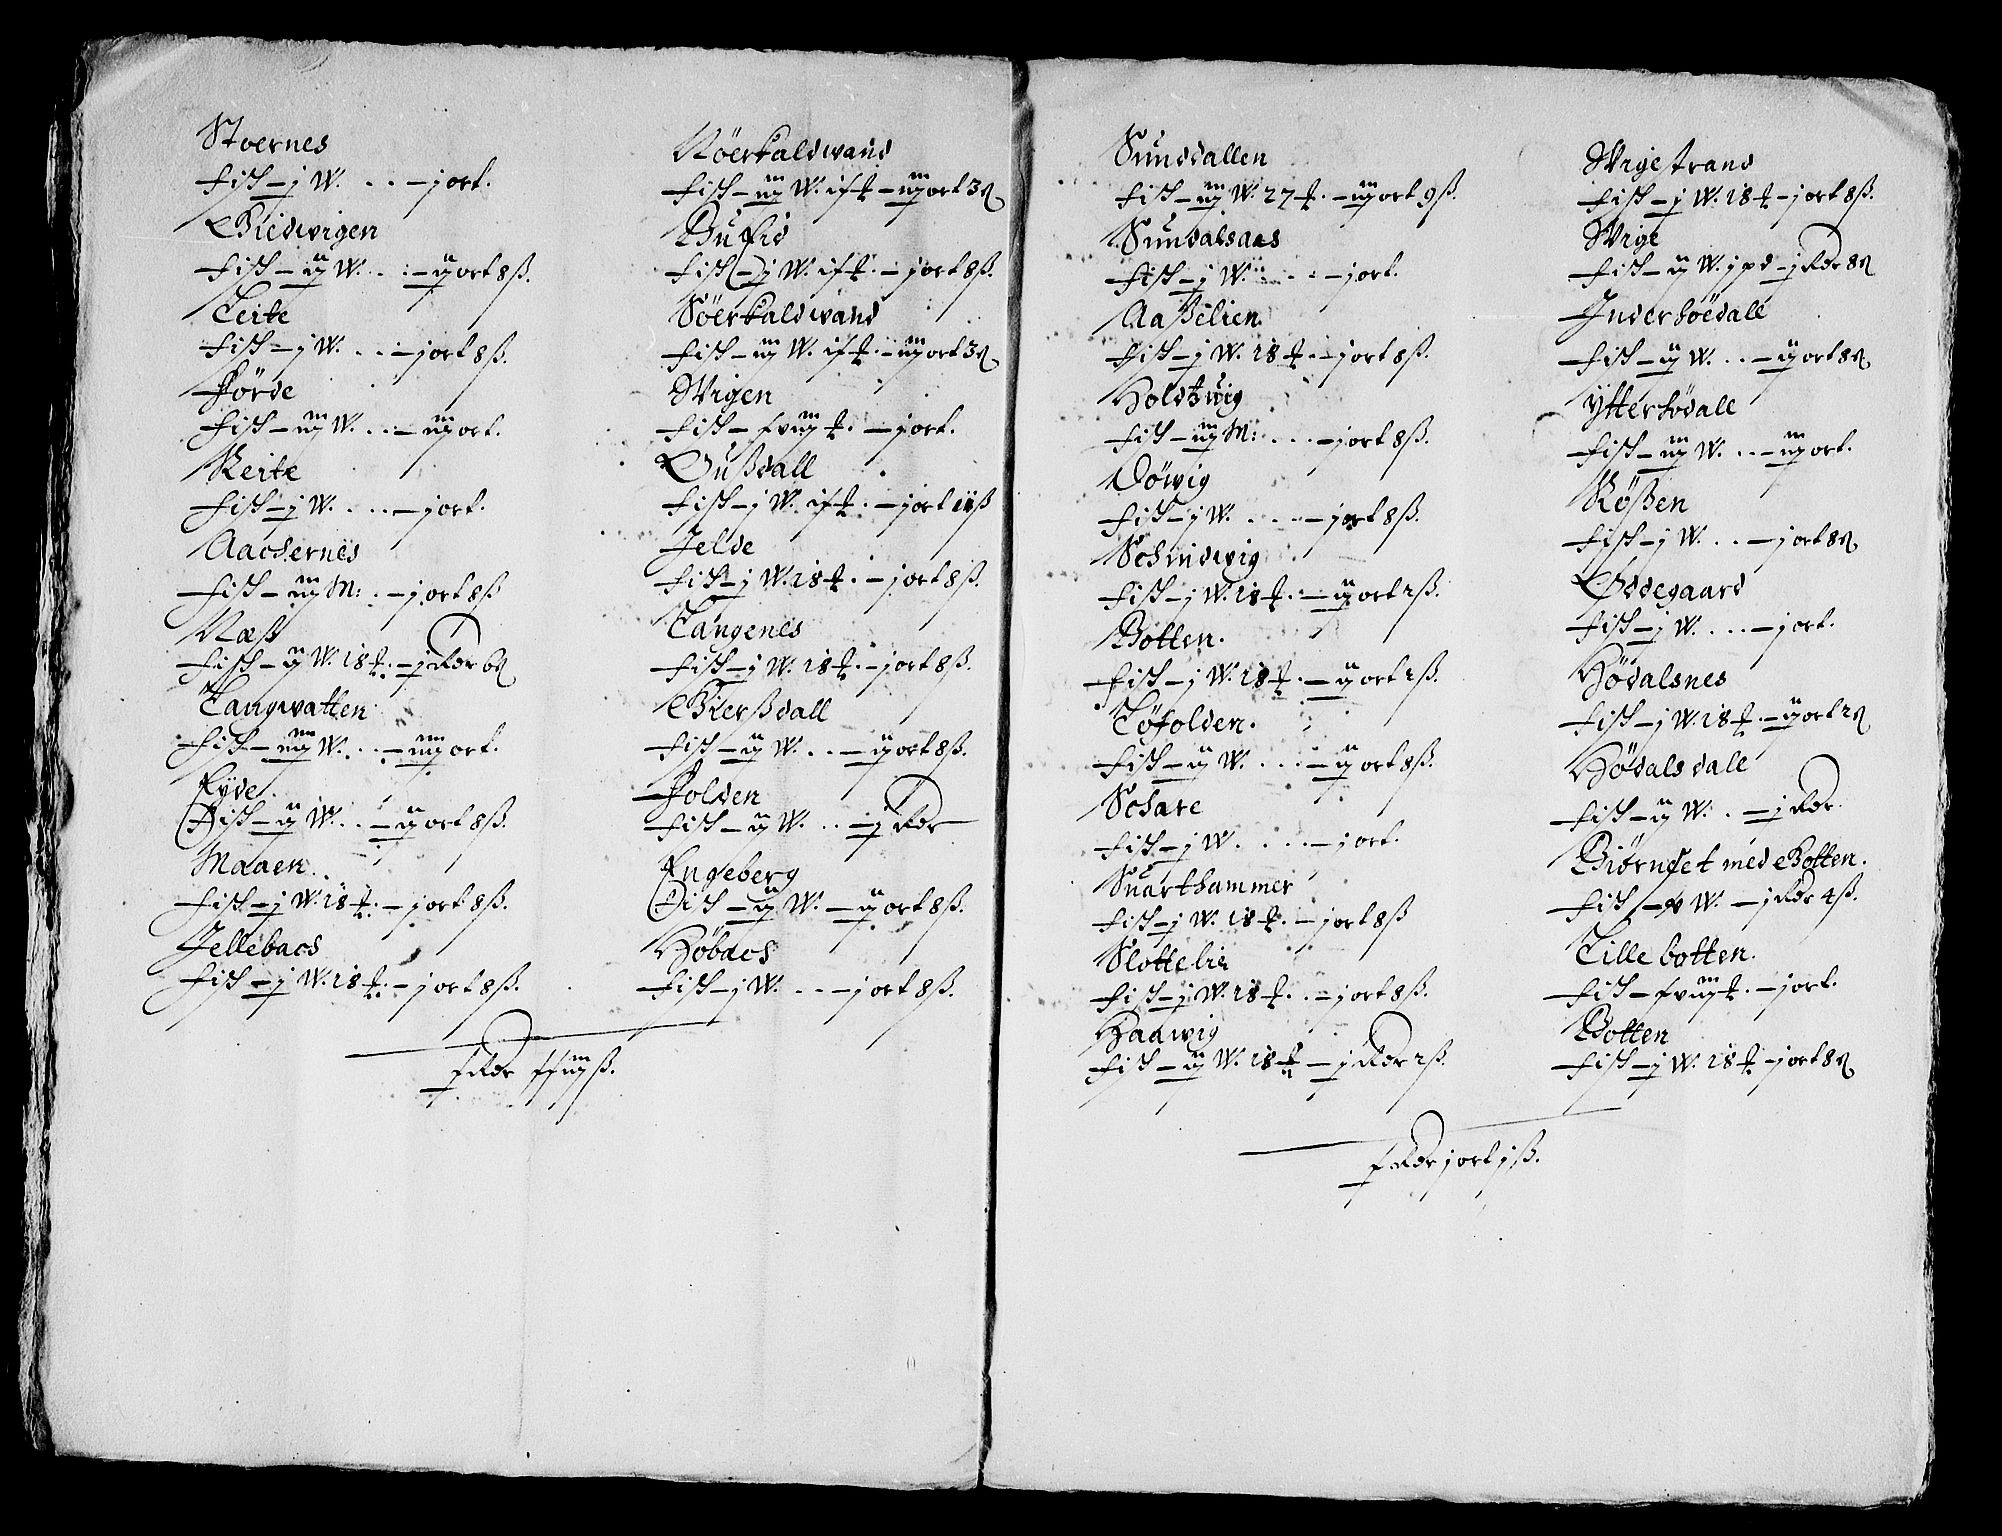 Stoernes
fisk – j W. . . – j ort.
Biedwigen
fisk – ij W. . . – ij ort 8 ß.
Leite
fisk – j W. . . – j ort 8 ß.
Förde
fisk – iij W. . . – iij ort.
Reite
fisk – j W. . . . – j ort.
Aachernes
fisk – iij M: . – j ort 8 ß
Næß
fisk – ij W. 18 ℔. – j Rdr 6 ß
Langwatten
fisk – iiij W. . . – iiij ort.
Eyde.
Fisk – ij W. . . – ij ort 8 ß.
Maaen.
fisk – j W. 18 ℔. – j ort 8 ß.
Jellebach
fisk – j W. 18 ℔. – j ort 8 ß.
Nöerkaldwand
fisk – iij W. if ℔ – iij ort 3 ß
Bufid
fisk – j W. if ℔. – j ort 8 ß.
Söerkaldwand
fisk – iij W. if ℔. – iij ort 3 ß
Wigen
fisk – fviij ℔. – j ort.
Oußdall
fisk – j W. if ℔. – j ort 11 ß
Jelde
fisk – j W. 18 ℔. – j ort 8 ß.
Langenes
fisk – j W. 18 ℔. – j ort 8 ß.
Bierßdall
fisk – ij W. . . – ij ort 8 ß.
Folden
fisk – ij W. . . – j Rdr
Engeberg
Fisk – ij W. – ij ort 8 ß.
Höbach
fisk – j W. . . – j ort 8 ß.
f Rdr ffiij ß.
Sunddallen
fisk – iij W. 27 ℔. – iij ort 9 ß.
Sundalsaas
fisk – j W. . . . – j ort.
Aaßelien
fisk – j W. 18 ℔. – j ort 8 ß.
Holdtwig
fisk – iij M: . . . – j ort 8 ß.
Döwig
fisk – j W. . . . – j ort 8 ß.
Schindwig
fisk – j W. 18 ℔. – ij ort 2 ß.
Botten.
fisk – j W. 18 ℔. – ij ort 2 ß.
Töfolden.
fisk – ij W. . . . – ij ort 8 ß.
Schare
fisk – j W. . . . – j ort.
Suarthammer
fisk – j W. 18 ℔. – j ort 8 ß
Slottelie
fisk – j W. 18 ℔. . – j ort 8 ß.
Haawig
fisk – ij W. 18 ℔ – j Rdr 2 ß.
Wigestrand
fisk – j W. 18 ℔ – j ort 8 ß.
Wige
fisk – ij W. j pd – j Rdr 8 ß
Inderhöedall
fisk – ij W. . . – ij ort 8 ß
Ytterhödall
fisk – iij W. . . – iij ort.
Rößen
fisk – j W. . . – j ort 8 ß.
Ødegaard
fisk – j W. . . . – j ort.
Hödalsnes
fisk – j W. 18 ℔. – ij ort 2 ß
Hödalsdall
fisk – ij W. . – j Rdr.
Biørnset med Botten.
fisk – W. – j Rdr 4 ß.
Lillebotten.
fisk – fviij ℔. – j ort.
Botten
fisk – j W. 18 ℔ – j ort 8 ß
f Rdr j ort j ß.